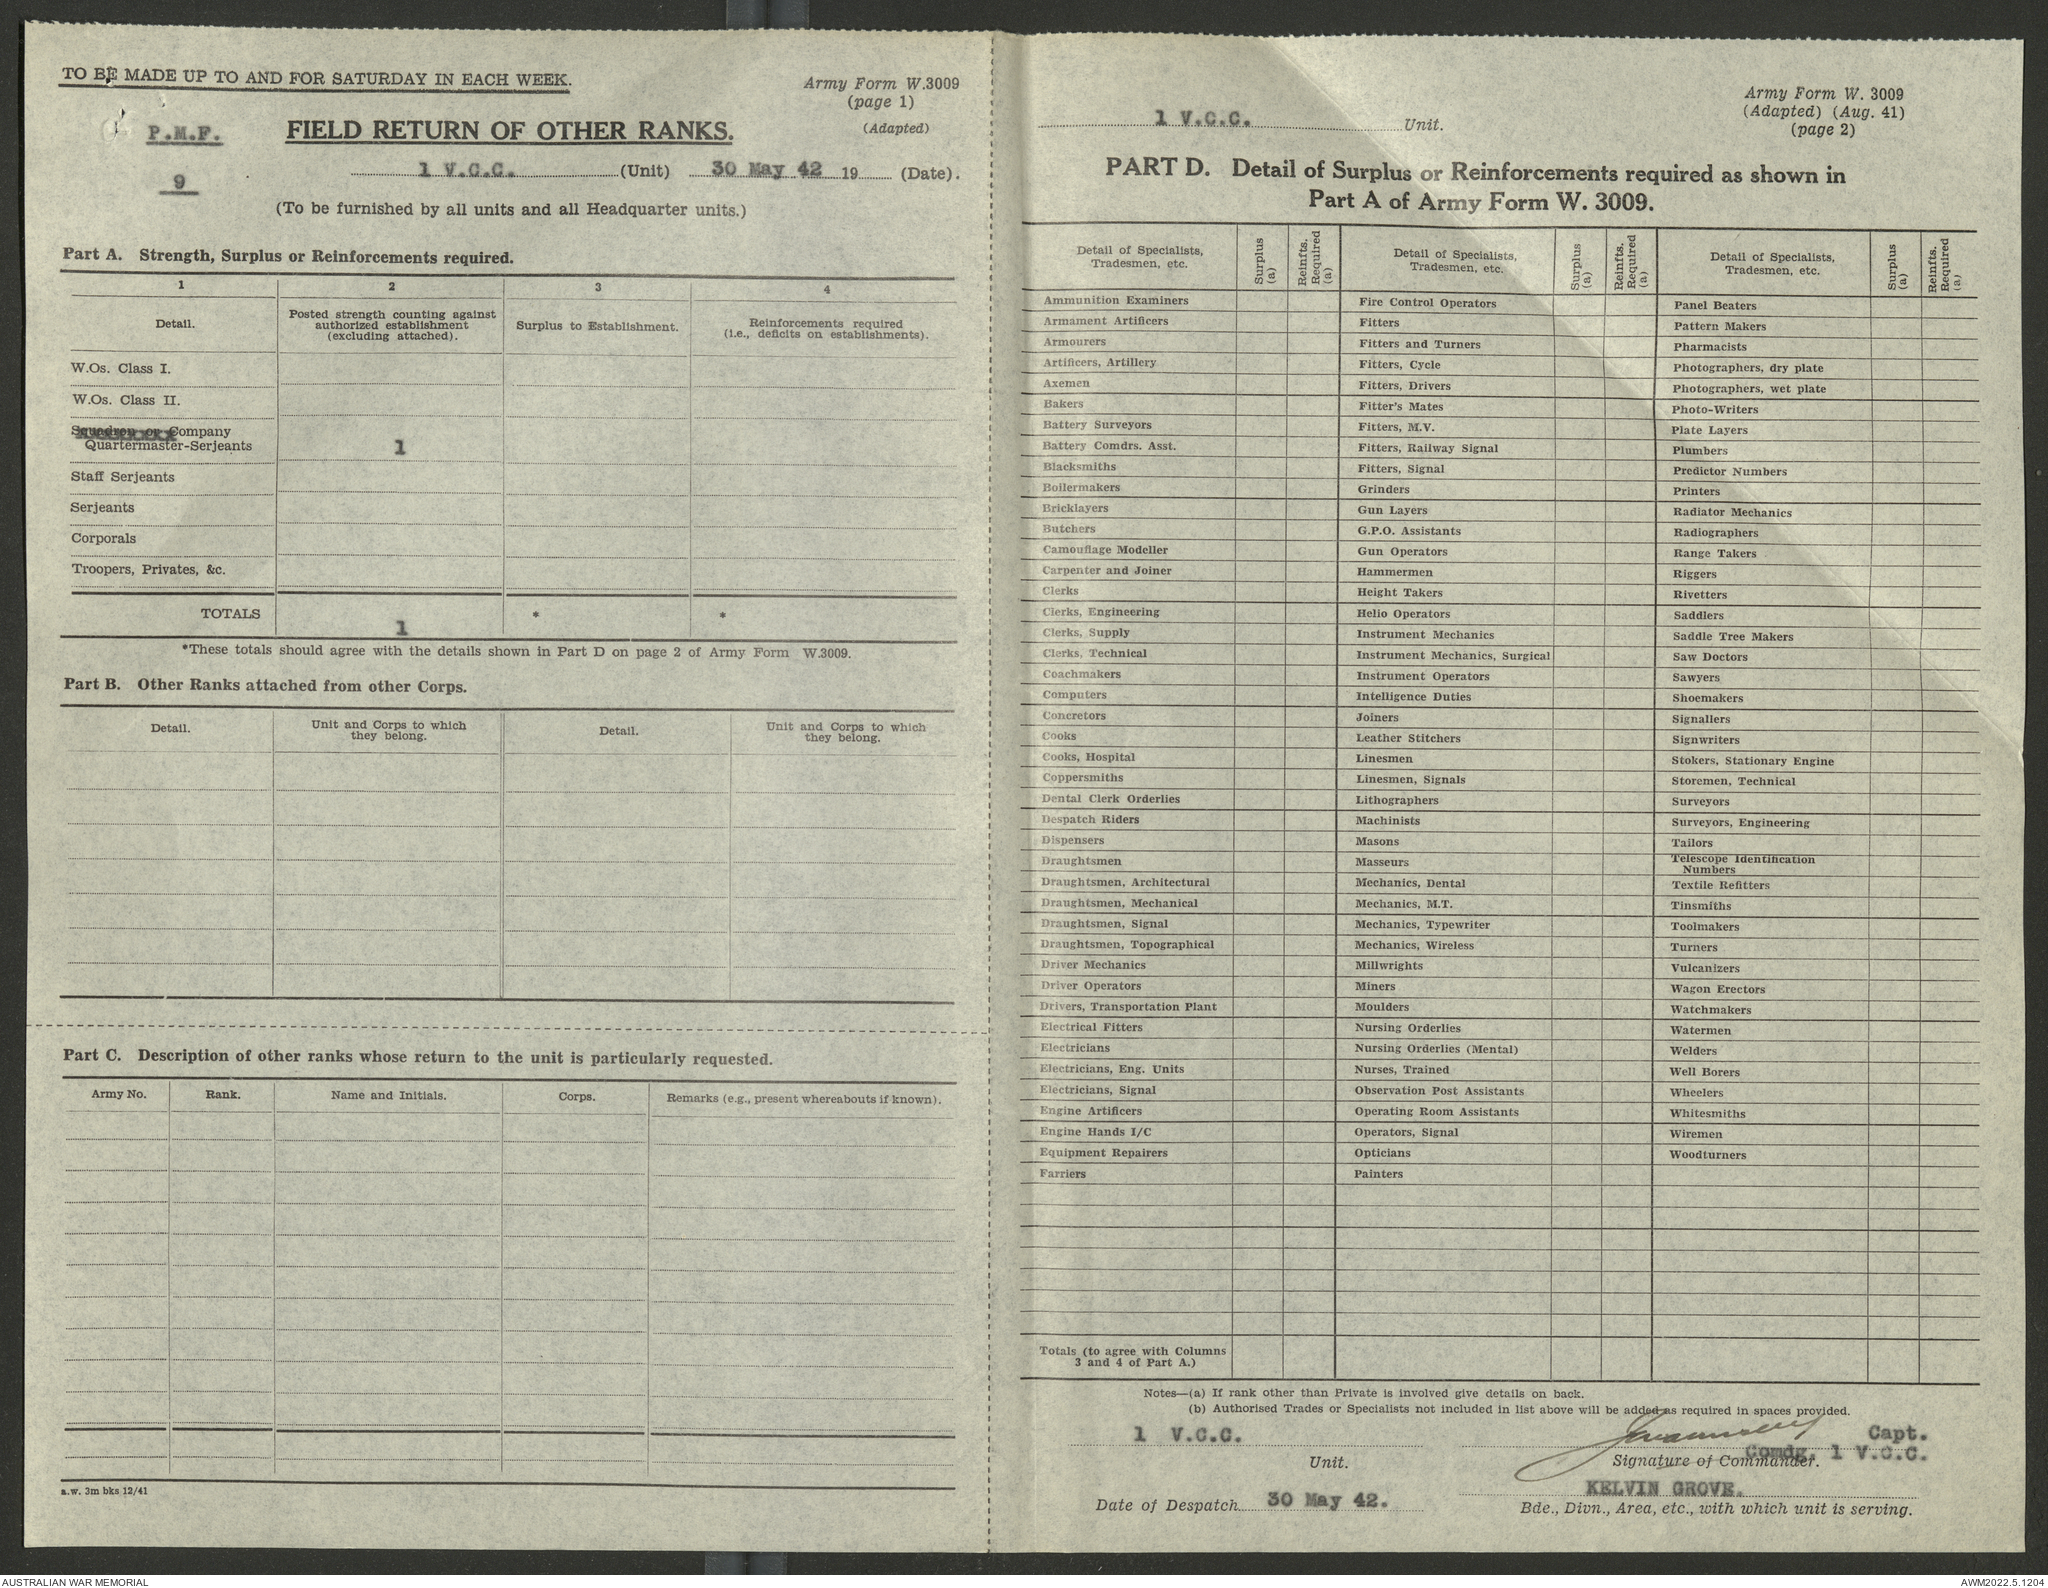 TO BE MADE UP TO AND FOR SATURDAY IN EACH WEEK.
Army Form W.3009
(page 1)
(Adapted)
P.M.F.
9
FIELD RETURN OF OTHER RANKS.
1 V.C.C. (Unit) 30 May 42 19 (Date).
(To be furnished by all units and all Headquarter units.)
Part A. Strength, Surplus or Reinforcements required.
1 2 3 4
Detail.
Posted strength counting against
authorized establishment
(excluding attached).
Surplus to Establishment.
Reinforcements required
(i.e., deficits on establishments).
W.Os. Class I.
W.Os. Class II.
Squadron or Company
Quartermaster-Serjeants 1
Staff Serjeants
Serjeants
Corporals
Troopers, Privates, &c.
TOTALS 1 * *
*These totals should agree with the details shown in Part D on page 2 of Army Form W.3009.
Part B. Other Ranks attached from other Corps.
Detail.
Unit and Corps to which
they belong.
Detail.
Unit and Corps to which
they belong.
Part C. Description of other ranks whose return to the unit is particularly requested.
Army No. Rank. Name and Initials. Corps. Remarks (e.g., present whereabouts if known).
a.w. 3m bks 12/41
Army Form W. 3009
(Adapted) (Aug. 41)
(page 2)
1 V.C.C. Unit.
PART D. Detail of Surplus or Reinforcements required as shown in
Part A of Army Form W. 3009.
Detail of Specialists,
Tradesmen, etc.
Surplus
(a)
Reinfts.
Required
(a)
Detail of Specialists,
Tradesmen, etc.
Surplus
(a)
Reinfts.
Required
(a)
Detail of Specialists,
Tradesmen, etc.
Surplus
(a)
Reinfts.
Required
(a)
Ammunition Examiners
Armament Artificers
Armourers
Artificers, Artillery
Axemen
Bakers
Battery Surveyors
Battery Comdrs. Asst.
Blacksmiths
Boilermakers
Bricklayers
Butchers
Camouflage Modeller
Carpenter and Joiner
Clerks
Clerks, Engineering
Clerks, Supply
Clerks, Technical
Coachmakers
Computers
Concretors
Cooks
Cooks, Hospital
Coppersmiths
Dental Clerk Orderlies
Despatch Riders
Dispensers
Draughtsmen
Draughtsmen, Architectural
Draughtsmen, Mechanical
Draughtsmen, Signal
Draughtsmen, Topographical
Driver Mechanics
Driver Operators
Drivers, Transportation Plant
Electrical Fitters
Electricians
Electricians, Eng. Units
Electricians, Signal
Engine Artificers
Engine Hands I/C
Equipment Repairers
Farriers
Fire Control Operators
Fitters
Fitters and Turners
Fitters, Cycle
Fitters, Drivers
Fitter's Mates
Fitters, M.V.
Fitters, Railway Signal
Fitters, Signal
Grinders
Gun Layers
G.P.O. Assistants
Gun Operators
Hammermen
Height Takers
Helio Operators
Instrument Mechanics
Instrument Mechanics, Surgical
Instrument Operators
Intelligence Duties
Joiners
Leather Stitchers
Linesmen
Linesmen, Signals
Lithographers
Machinists
Masons
Masseurs
Mechanics, Dental
Mechanics, M.T.
Mechanics, Typewriter
Mechanics, Wireless
Millwrights
Miners
Moulders
Nursing Orderlies
Nursing Orderlies (Mental)
Nurses, Trained
Observation Post Assistants
Operating Room Assistants
Operators, Signal
Opticians
Painters
Panel Beaters
Pattern Makers
Pharmacists
Photographers, dry plate
Photographers, wet plate
Photo-Writers
Plate Layers
Plumbers
Predictor Numbers
Printers
Radiator Mechanics
Radiographers
Range Takers
Riggers
Rivetters
Saddlers
Saddle Tree Makers
Saw Doctors
Sawyers
Shoemakers
Signallers
Signwriters
Stokers, Stationary Engine
Storemen, Technical
Surveyors
Surveyors, Engineering
Tailors
Telescope Identification
Numbers
Textile Refitters
Tinsmiths
Toolmakers
Turners
Vulcanizers
Wagon Erectors
Watchmakers
Watermen
Welders
Well Borers
Wheelers
Whitesmiths
Wiremen
Woodturners
Totals (to agree with Columns
3 and 4 of Part A.)
Notes—(a) If rank other than Private is involved give details on back.
(b) Authorised Trades or Specialists not included in list above will be added as required in spaces provided.
1 V.C.C.
Unit.
Capt.
Comdg. 1 V.C.C.
Signature of Commander.
Date of Despatch 30 May 42.
KELVIN GROVE.
Bde., Divn., Area, etc., with which unit is serving.
AUSTRALIAN WAR MEMORIAL
AWM2022.5.1204